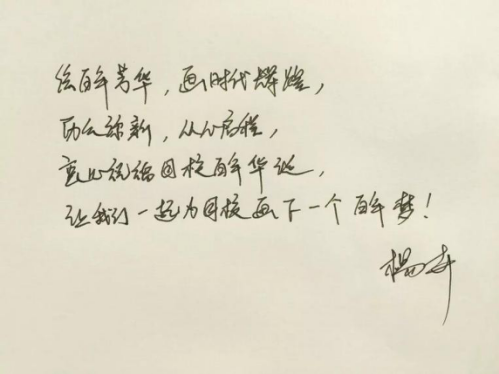 绘百年芳华，画时代辉煌，
历久弥新，从心启程，
衷心祝福母校百年华诞，
让我们一起为母校画下一个百年梦！
杨